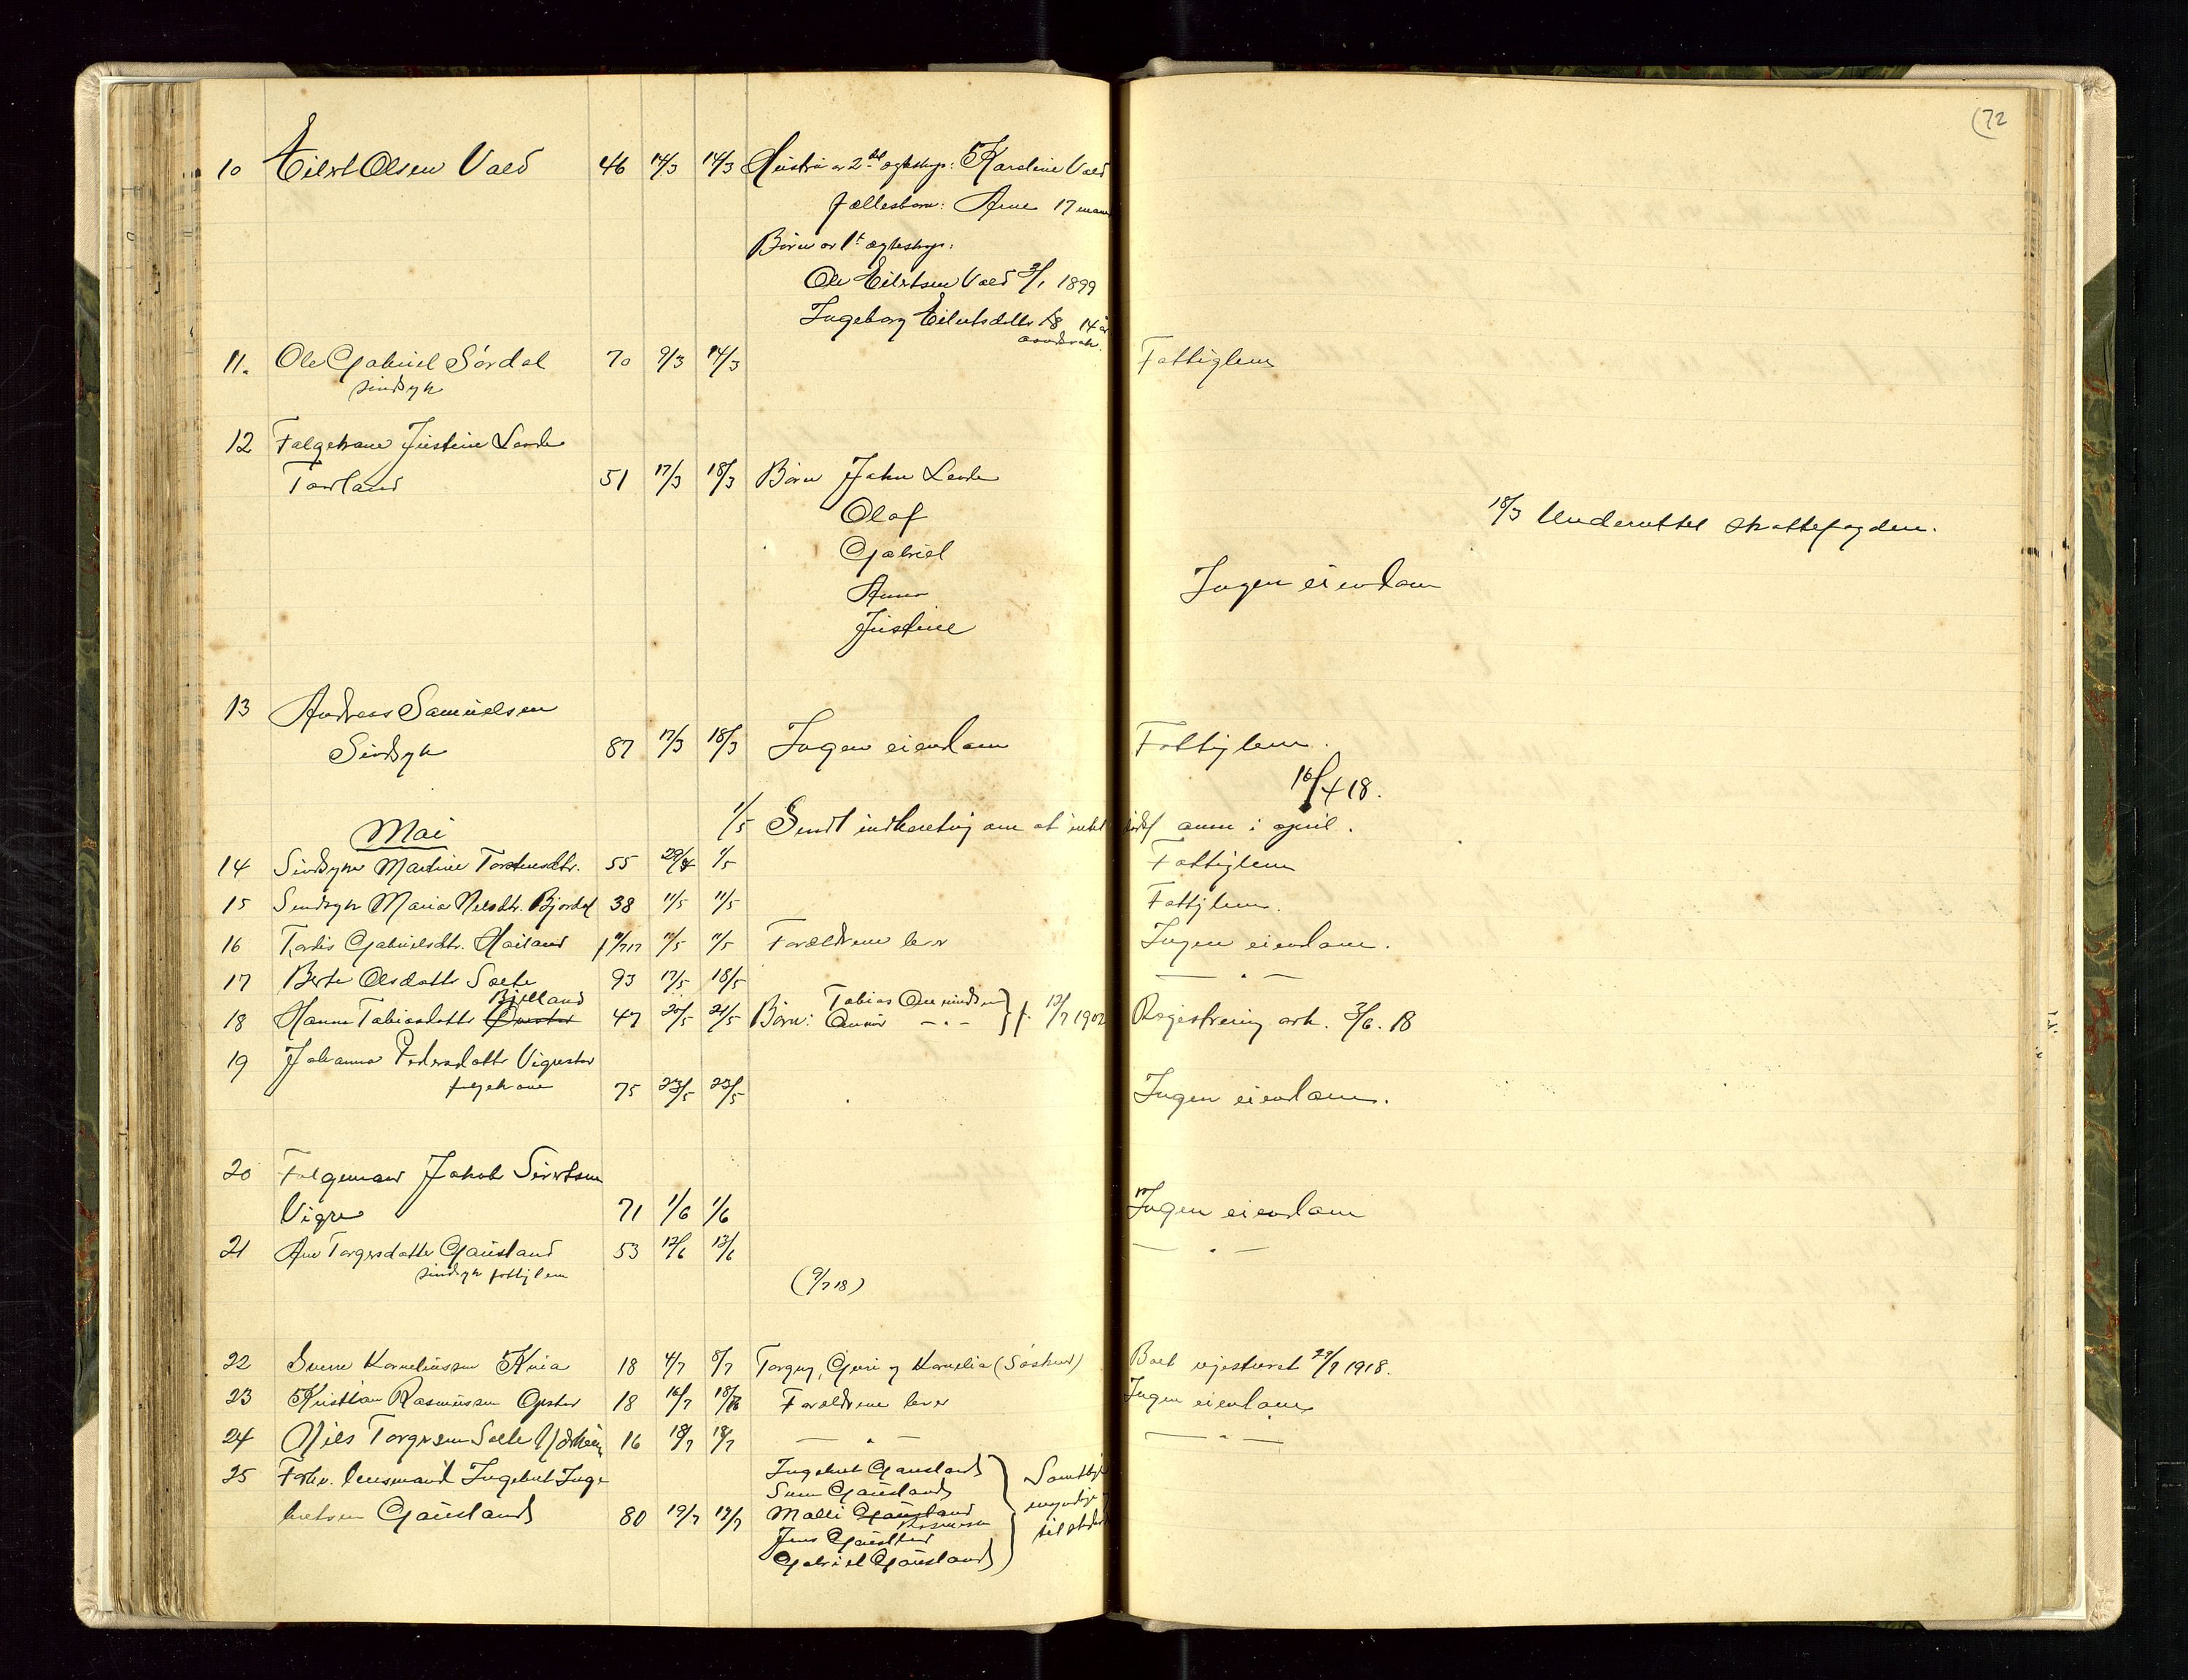 (72
10 Eilert Olsen Vald 46 14/3 14/3 Hustru av 2det egteskap: Karoline Vald
fællesbarn: Arne 17 maan
Børn av 1st egteskap:
Ole Eilertsen Vald 3/1 1899
Ingeborg Eilertsdatter 14 år
11. Ole Gabriel Sørdal 70 9/3 14/3 Fattiglem
sindsyk
12 Føderaad Justine Lende
Torland 51 17/3 18/3 Børn John Lende
Olaf
18/3 Underrettet skattefogden.
Gabriel
Ingen eiendom
Anna
Justine
13 Andreas Samuelsen
Sindsyk 87 17/3 18/3 Ingen eiendom Fattiglem.
16/4 18.
Mai 1/5 Sendt indberetning om at intet dødsf anm i april.
14 Sindsyke Martine Torstensdtr. 55 29/4 1/5 Fattiglem
15 Sindsyk Maria Nelsdtr. Bjordal 38 11/5 11/5 Fattiglem.
16 Tordis Gabrielsdtr. Hailand 11/5 11/5 Forældrene lever Ingen eiendom.
17 Berte Olsdatter Salte 93 17/5 18/5 — " —
Bjelland
18 Hanna Tobiasdatter 47 20/5 21/5 Børn: Tobias f. 1902 Registrering 3/6. 18
19 Johanna Pedersdatter Vigrestad
75 23/5 23/5 Ingen eiendom.
20 Folgemand Jakob Sivertsen
Vigre 71 1/6 1/6 Ingen eiendom
21 Ane Torgersdatter Gausland 53 12/6 13/6 — " —
sindsyk fattiglem
(9/7 18)
22 Sverre Korneliussen Kvia 18 4/7 8/7 Torger, Guri og Kornelia (Søskend) Boet registreret 29/7 1918.
23 Kristian Rasmussen Opstad 18 16/7 Forældrene lever Ingen eiendom
24 Nils Torgersen Salte 16 18/7 18/7 — " — — " —
25 Forhv. lensmand Ingebret Inge
bretsen Gausland 80 19/7 19/7
Ingebret Gausland
Sven Gausland
Malli Gausland
Rasmussen
Jens Gausland
Gabriel Gausland
Samtlige
myndige